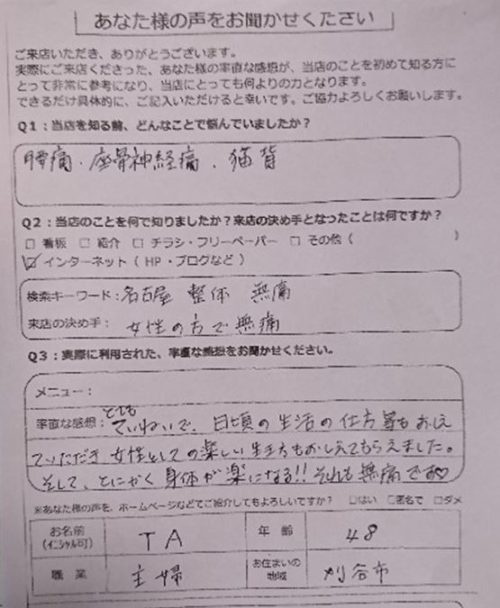 あなた様の声をお聞かせください
ご来店いただき、ありがとうございます。
実際にご来店くださった、あなた様の率直な感想が、当店のことを初めて知る方に
とって非常に参考になり、当店にとっても何よりの力となります。
できるだけ具体的に、ご記入いただけると幸いです。ご協力よろしくお願いします。
Q1：当店を知る前、どんなことで悩んでいましたか？
腰痛・座骨神経痛・猫背
Q2：当店のことを何で知りましたか？来店の決め手となったことは何ですか？
□ 看板 □ 紹介 □ チラシ・フリーペーパー □ その他（ ）
☑ インターネット（ HP・ブログなど ）
検索キーワード：名古屋 整体 無痛
来店の決め手： 女性の方で無痛
Q3：実際に利用された、率直な感想をお聞かせください。
メニュー：
率直な感想：とてもていねいで、日頃の生活の仕方等もおしえ
ていただき 女性としての楽しい生き方もおしえてもらえました。
そして、とにかく身体が楽になる!! それも無痛です♡
※あなた様の声を、ホームページなどでご紹介してもよろしいですか？ □はい □匿名で □ダメ
お名前 TA 年齢 48
(イニシャル可)
職業 主婦 お住まいの地域 刈谷市